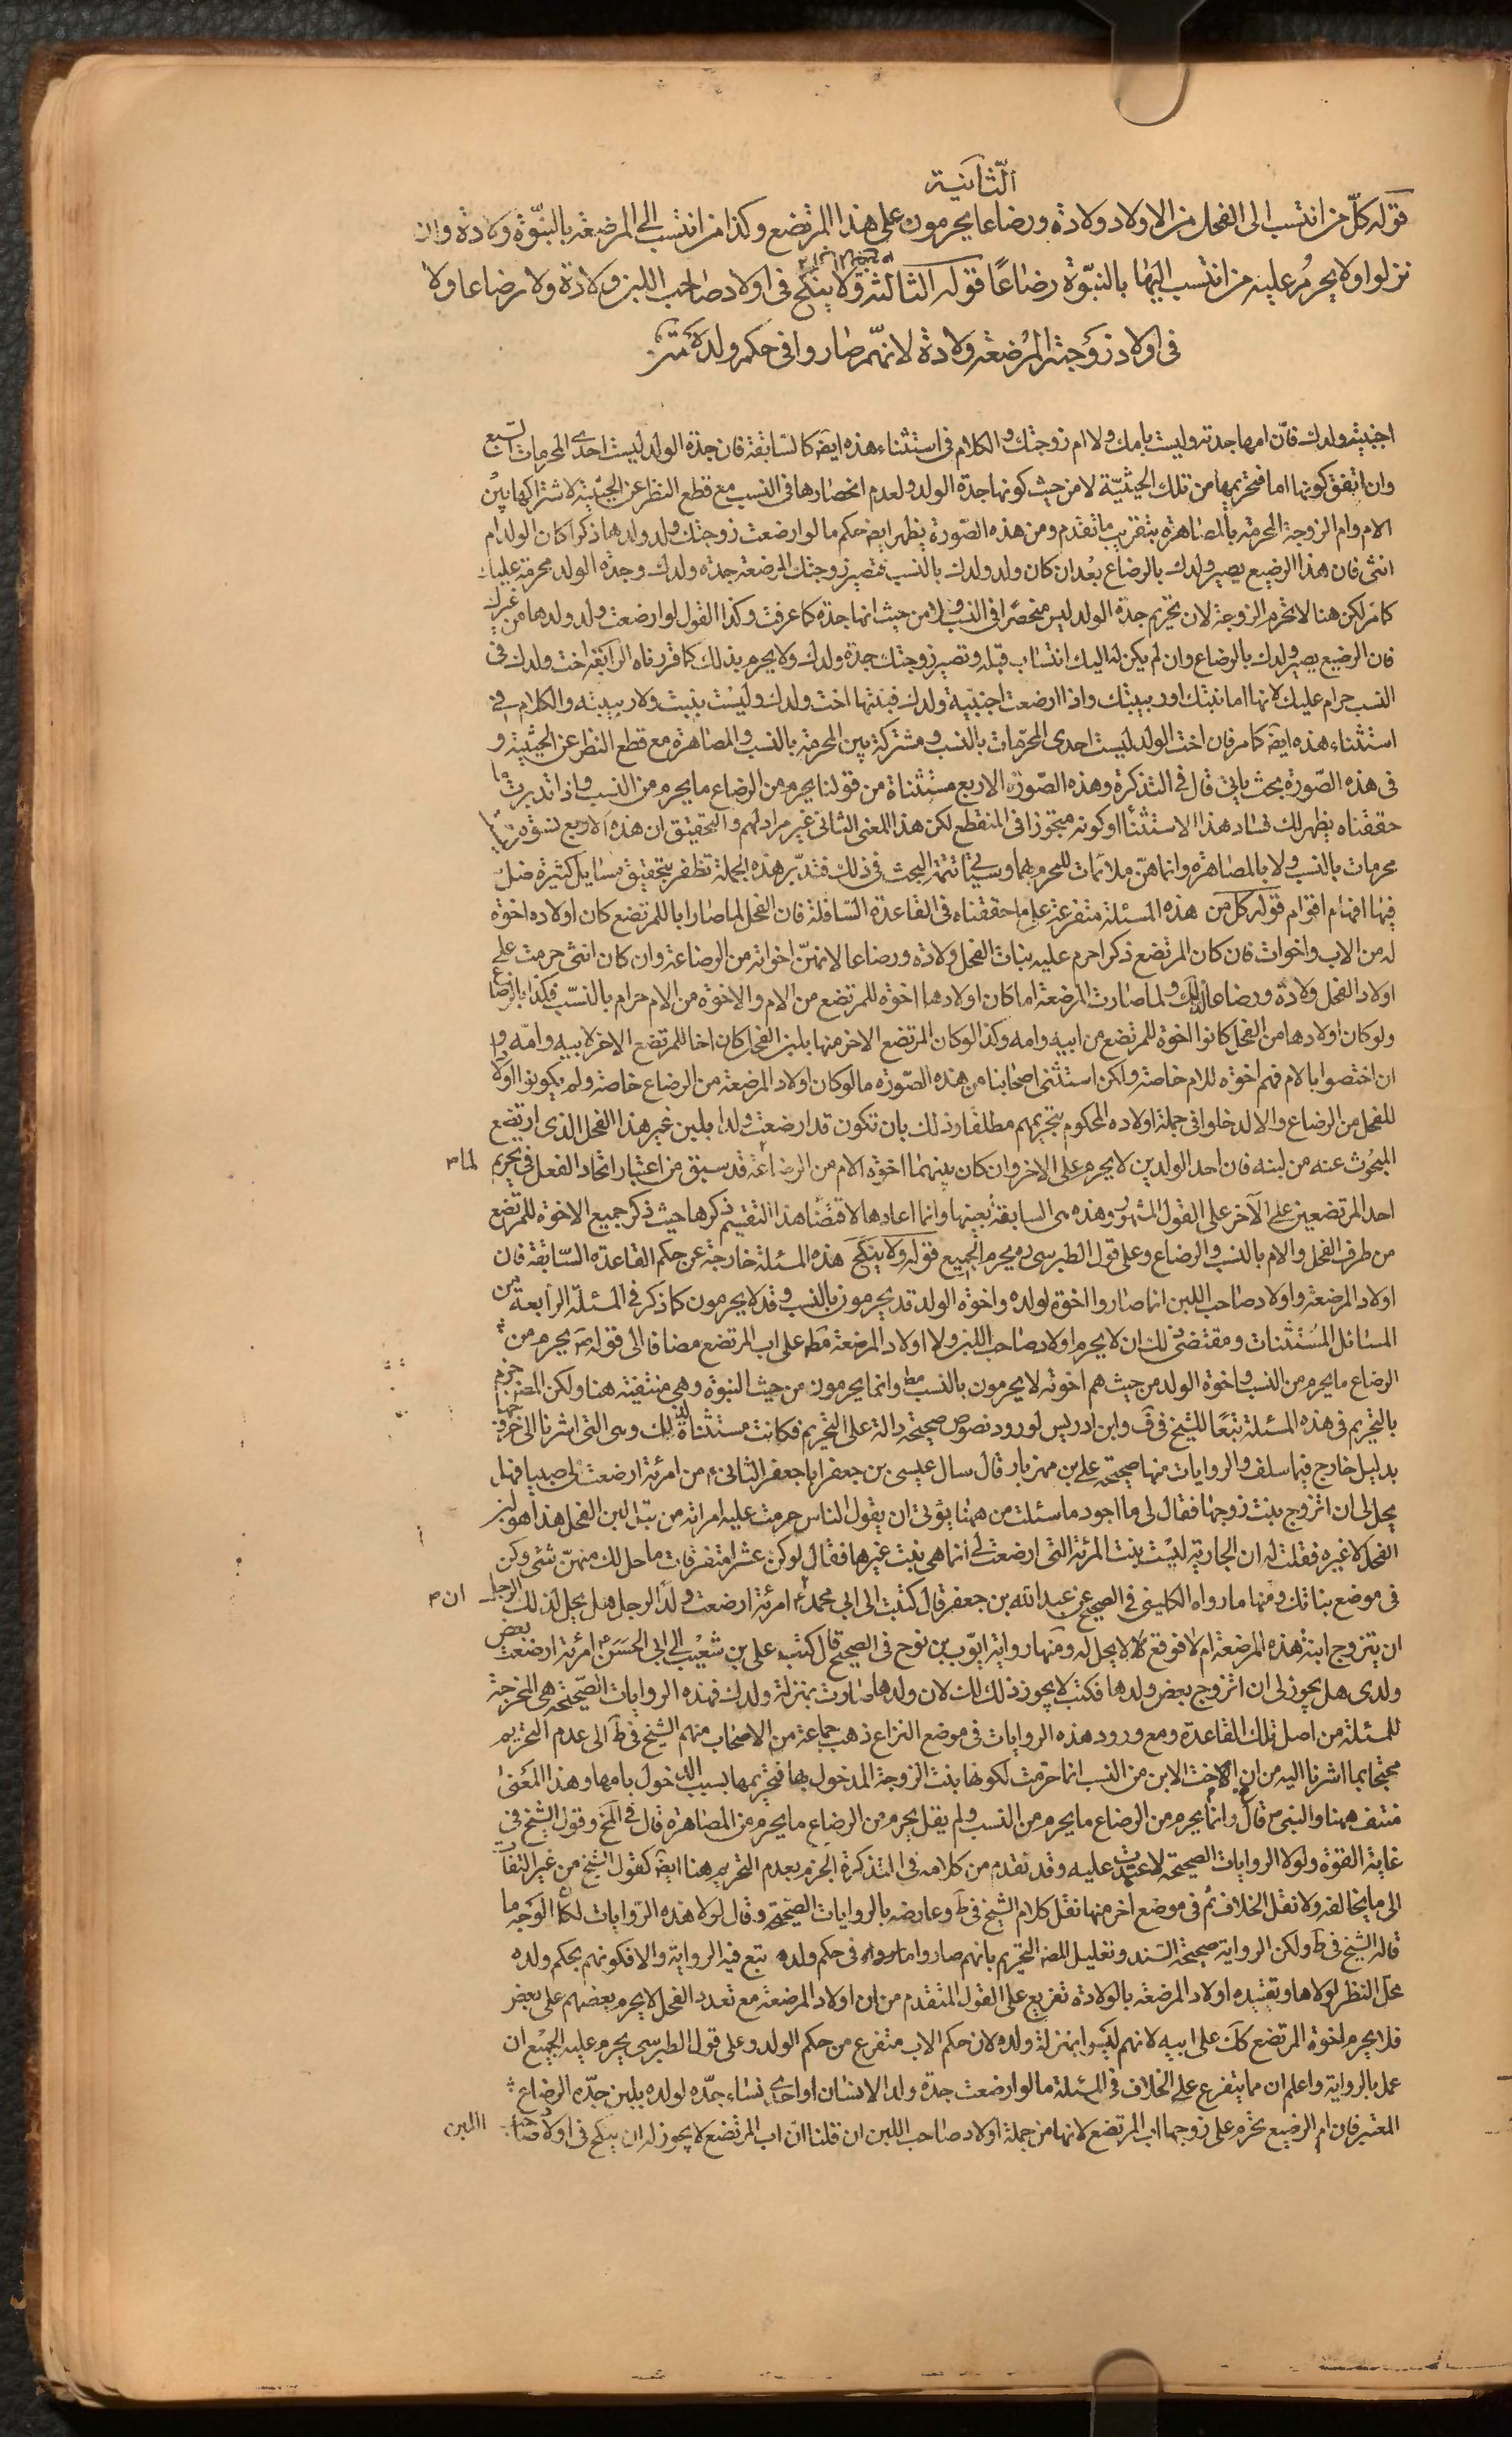 الثانية
قوله كل من انتسب الى الفحل من الاولاد ولادة ورضاعا يحرمون على هذا المرتضع وكذا من انتسب الى المرضعة بالبنوّة ولادة وان
نزلوا ولا يحرم عليه من انتسب اليها بالبنوّة رضاعًا قوله الثالثة ولا ينكح فى اولاد صاحب اللبن ولادة ولا رضاعا ولا
فى اولاد زوجته المرضعة ولادة لانهم صاروا فى حكم ولده
اجنبية ولدك فان امها جدته وليست بامك ولا ام زوجتك والكلام فى استثناء هذه ايضا كالسابقة فان جدة الولد ليست احدى المحرمات السبع
وان اتفق كونها اما فتحريمها من تلك الحيثية لا من حيث كونها جدة الولد ولعدم انحصارها فى النسب مع قطع النظر عن الحيثية لاشتراكها بين
الام وام الزوجة المحرمة بالمصاهرة بتقريب ما تقدم ومن هذه الصورة يظهر ايضا حكم ما لو ارضعت زوجتك ولد ولدها ذكرا كان الولد ام
انثى فان هذا الرضيع يصير ولدك بالرضاع بعد ان كان ولد ولدك بالنسب فتصير زوجتك المرضعة جدة ولدك وجدة الولد محرمة عليك
كما مر لكن هنا لا تحرم الزوجة لان تحريم جدة الولد ليس منحصرا فى النسب ولا من حيث انها جدة كما عرفت وكذا القول لو ارضعت ولد ولدها من غيرك
فان الرضيع يصير ولدك بالرضاع وان لم يكن له اليك انتساب قبله وتصير زوجتك جدة ولدك ولا يحرم بذلك كما قررناه الرابعة اخت ولدك فى
النسب حرام عليك لانها اما بنتك او ربيبتك واذا ارضعت اجنبية ولدك فبنتها اخت ولدك وليست ببنت ولا ربيبة والكلام فى
استثناء هذه ايضا كما مر فان اخت الولد ليست احدى المحرمات بالنسب ومشتركة بين المحرمة بالنسب والمصاهرة مع قطع النظر عن الحيثية و
فى هذه الصورة بحث ياتى قال فى التذكرة وهذه الصور الاربع مستثناة من قولنا يحرم من الرضاع ما يحرم من النسب واذا تدبرت ما
حققناه يظهر لك فساد هذا الاستثناء او كونه متجوزا فى المنقطع لكن هذا المعنى الثانى غير مراد لهم والتحقيق ان هذه الاربع نسوة
محرمات بالنسب ولا بالمصاهرة وانما هنّ ملائمات للمحرم بهما وسياتى تتمة البحث فى ذلك فتدبر هذه الجملة تظفر بتحقيق مسايل كثيرة ضل
فيها افهام اقوام قوله كل من هذه المسئلة متفرعة على ما حققناه فى القاعدة السافلة فان الفحل لما صار ابا للمرتضع كان اولاده اخوة
له من الاب واخوات فان كان المرتضع ذكرا حرم عليه بنات الفحل ولادة ورضاعا لانهنّ اخواته من الرضاعة وان كان انثى حرمت على
اولاد الفحل ولادة ورضاعا لذلك ولما صارت المرضعة اما كان اولادها اخوة للمرتضع من الام والاخوة من الام حرام بالنسب فكذا بالرضاع
ولو كان اولادها من الفحل كانوا اخوة للمرتضع من ابيه وامه وكذا لو كان المرتضع الاخر منها بلبن الفحل كان اخا للمرتضع الاخر لابيه وامه و
ان اختصوا بالام فهم اخوة للام خاصة ولكن استثنى اصحابنا من هذه الصورة ما لو كان اولاد المرضعة من الرضاع خاصة ولم يكونوا اولادا
للفحل من الرضاع والا لدخلوا فى جملة اولاده المحكوم بتحريمهم مطلقا وذلك بان تكون قد ارضعت ولدا بلبن غير هذا الفحل الذى ارتضع
المبحوث عنه من لبنه فان احد الولدين لا يحرم على الاخر وان كان بينهما اخوة الام من الرضاعة قد سبق من اعتبار اتحاد الفحل فى تحريم
لما
احد المرتضعين على الآخر على القول المشهور وهذه هى السابقة بعينها وانما اعادها لاقتضاء هذا التقسيم ذكرها حيث ذكر جميع الاخوة للمرتضع
من طرف الفحل والام بالنسب والرضاع وعلى قول الطبرسى ره يحرم الجميع قوله ولا ينكح هذه المسئلة خارجة عن حكم القاعدة السابقة فان
اولاد المرضعة واولاد صاحب اللبن انما صاروا اخوة لولده واخوة الولد قد يحرمون بالنسب وقد لا يحرمون كما ذكر فى المسئلة الرابعة من
المسائل المستثنيات ومقتضى ذلك ان لا يحرم اولاد صاحب اللبن ولا اولاد المرضعة مط على اب المرتضع مضافا الى قوله ص يحرم من
الرضاع ما يحرم من النسب واخوة الولد من حيث هم اخوته لا يحرمون بالنسب مط وانما يحرمون من حيث البنوة وهى منتفية هنا ولكن المصنف جزم
بالتحريم فى هذه المسئلة تبعًا للشيخ فى ف وابن ادريس لورود نصوص صحيحة دالة على التحريم فكانت مستثناة لذلك وهى التى اشرنا الى خروجها
بدليل خارج فيما سلف والروايات منها صحيحة على بن مهزيار قال سال عيسى بن جعفر ابا جعفر الثانى ع من امرئة ارضعت لى صبيا فهل
يحل لى ان اتزوج بنت زوجها فقال لى ما اجود ما سئلت من ههنا يؤتى ان يقول الناس حرمت عليه امراته من قبل لبن الفحل هذا هو لبن
الفحل لا غيره فقلت له ان الجارية ليست بنت المرئة التى ارضعت لى انما هى بنت غيرها فقال لو كن عشرا متفرقات ما حل لك منهنّ شئ وكن
فى موضع بناتك ومنها ما رواه الكلينى فى الصحيح عن عبد الله بن جعفر قال كتبت الى ابى محمد ع امرئة ارضعت ولد الرجل هل يحل لذلك الرجل
ان
ان يتزوج ابنة هذه المرضعة ام لا فوقع لا يحل له ومنها رواية ايوب بن نوح فى الصحيح قال كتب على بن شعيب الى ابى الحسن ع امرئة ارضعت بعض
ولدى هل يجوز لى ان اتزوج بعض ولدها فكتب لا يجوز ذلك لك لان ولدها صارت بمنزلة ولدك فهذه الروايات الصحيحة هى المخرجة
للمسئلة من اصل تلك القاعدة ومع ورود هذه الروايات فى موضع النزاع ذهب جماعة من الاصحاب منهم الشيخ فى ط الى عدم التحريم
محتجا بما اشرنا اليه من ان اخت الابن من النسب انما حرمت لكونها بنت الزوجة المدخول بها فتحريمها بسبب الدخول بامها وهذا المعنى
منتف ههنا والنبى ص قال انما يحرم من الرضاع ما يحرم من النسب ولم يقل يحرم من الرضاع ما يحرم من المصاهرة قال فى المخ وقول الشيخ فى
غاية القوة ولولا الروايات الصحيحة لاعتمدت عليه وقد تقدم من كلامه فى التذكرة الجزم بعدم التحريم هنا ايضا كقول الشيخ من غير التفات
الى ما يخالفه ولا نقل الخلاف ثم فى موضع اخر منها نقل كلام الشيخ فى ط وعارضه بالروايات الصحيحة وقال لولا هذه الروايات لكان الوجه ما
قاله الشيخ فى ط ولكن الرواية صحيحة السند وتعليل المصنف التحريم بانهم صاروا فى حكم ولده تبع فيه الرواية والا فكونهم بحكم ولده
محل النظر لولاها وتقييده اولاد المرضعة بالولادة تفريع على القول المتقدم من ان اولاد المرضعة مع تعدد الفحل لا يحرم بعضهم على بعض
فلا يحرم اخوة المرتضع كك على ابيه لانهم ليسوا بمنزلة ولده لان حكم الاب متفرع من حكم الولد وعلى قول الطبرسى يحرم عليه الجميع ان
عمل بالرواية واعلم ان مما يتفرع على الخلاف فى المسئلة ما لو ارضعت جدة ولد الانسان او احدى نساء جده لولده بلبن جده الرضاع
المعتبر فان ام الرضيع تحرم على زوجها اب المرتضع لانها من جملة اولاد صاحب اللبن ان قلنا ان اب المرتضع لا يجوز له ان ينكح فى اولاد صاحب
اللبن